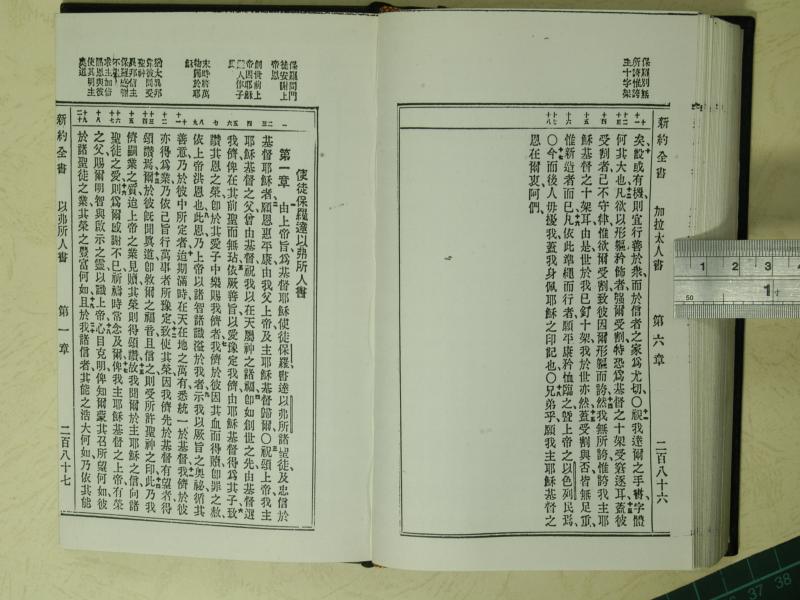 新約全書 加拉太人書 第六章 二百八十六
保羅別無
所誇惟誇
主十字架
矣故或有機則宜行善於衆而於信者之家爲尤切〇視我達爾之手書字體
何其大也凡欲以形軀矜飾者強爾受割特恐爲基督之十架受窘逐耳蓋彼
受割者己不守律惟欲爾受割致彼因爾形軀而誇然我無所誇惟誇我主耶
穌基督之十架耳由是世於我已釘十架我於世亦然蓋受割與否皆無足重
惟新造者而已凡依此準繩而行者願平康矜恤臨之曁上帝之以色列民焉
〇今而後人毋擾我蓋我身佩耶穌之印記也〇兄弟乎願我主耶穌基督之
恩在爾衷阿們
保羅問門
徒安謝上
帝恩
創世前上
帝因耶穌
末時將萬
物歸於耶
穌
猶太異邦
聖神
異邦信主
保羅感謝
不已
求主加信
使其明主
奧道
使徒保羅達以弗所人書
第一章 由上帝旨爲基督耶穌使徒保羅書達以弗所諸聖徒及忠信於
基督耶穌者願恩惠平康由我父上帝及主耶穌基督歸爾〇祝頌上帝我主
耶穌基督之父曾由基督祝我以在天屬神之諸福卽如創世之先由基督選
我儕俾在其前聖而無玷依厥善旨以愛豫定我儕由耶穌基督得爲其子致
讚其恩之榮卽於其愛子中樂賜我儕者我儕於彼因其血而得贖卽罪之赦
依上帝洪恩也此恩乃上帝以諸智諸識溢於我者示我以厥旨之奧祕循其
善意乃於彼中所定者迨期滿時在天在地之萬有悉統一於基督我儕於彼
亦得爲業乃依己旨行萬事者所豫定致使其榮因我儕先於基督有望者得
頌讚焉爾於彼旣聞眞道卽救爾之福音且信之則受所許聖神之印此乃我
儕嗣業之質迨上帝之業見贖其榮則得頌讚故我聞爾於主耶穌之信向諸
聖徒之愛則爲爾感謝不已祈禱時常念及爾俾我主耶穌基督之上帝有榮
之父賜爾明智與啟示之靈以識上帝心目克明俾知爾蒙其召所望何如彼
於諸聖徒之業其榮之豐富何如且於我諸信者其能之浩大何如乃依其能
新約全書 以弗所人書 第一章 二百八十七
1 2 3
1
50
37 38